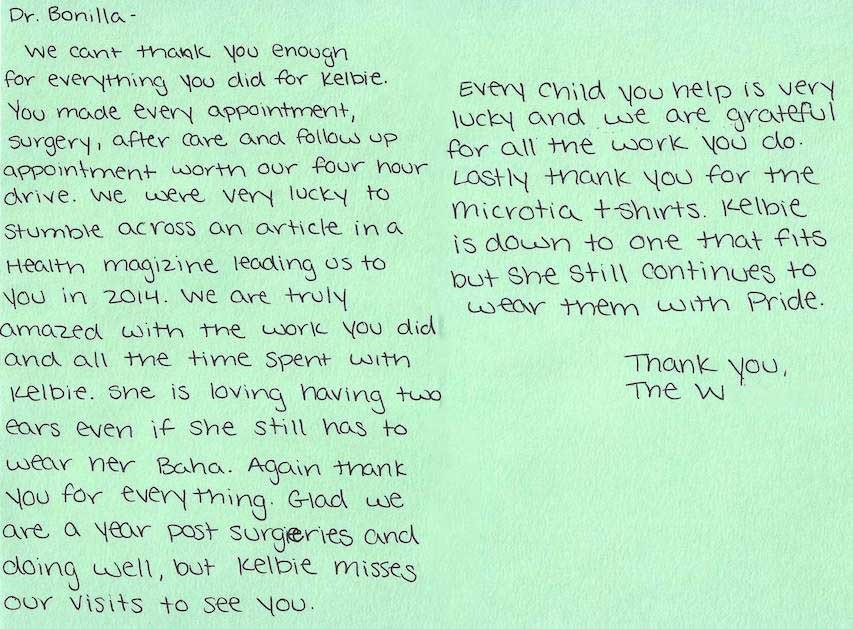 Dr. Bonilla -
We cant thank you enough
for everything you did for Kelbie.
You made every appointment,
surgery, after care and follow up
appointment worth our four hour
drive. We were very lucky to
stumble across an article in a
Health magizine leading us to
you in 2014. We are truly
amazed with the work you did
and all the time spent with
Kelbie. She is loving having two
ears even if she still has to
wear her Baha. Again thank
you for everything. Glad we
are a year post surgeries and
doing well, but Kelbie misses
our visits to see you.
Every child you help is very
lucky and we are grateful
for all the work you do.
Lastly thank you for the
microtia t-shirts. Kelbie
is down to one that fits
but she still continues to
wear them with Pride.
Thank you,
The W